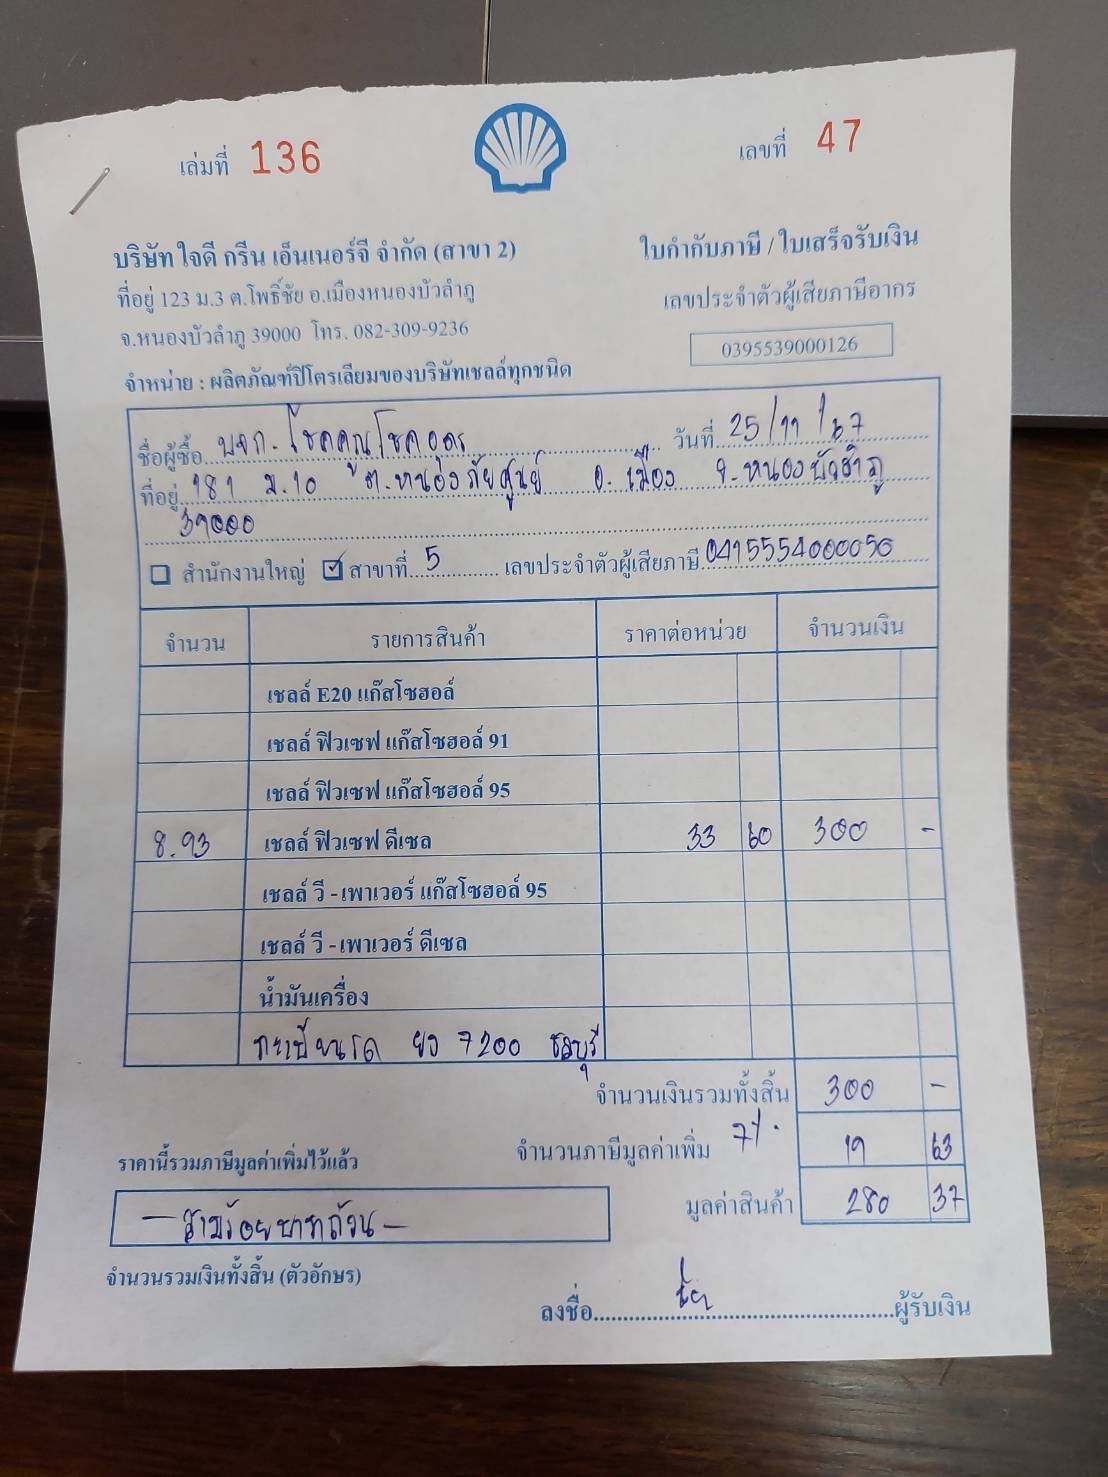 เล่มที่ 136
เลขที่ 47
บริษัท ใจดี กรีน เอ็นเนอร์จี จำกัด (สาขา 2)
ใบกำกับภาษี / ใบเสร็จรับเงิน
ที่อยู่ 123 ม.3 ต.โพธิ์ชัย อ.เมืองหนองบัวลำภู
เลขประจำตัวผู้เสียภาษีอากร
จ.หนองบัวลำภู 39000 โทร. 082-309-9236
0395539000126
จำหน่าย : ผลิตภัณฑ์ปิโตรเลียมของบริษัทเชลล์ทุกชนิด
ชื่อผู้ซื้อ บจก. โชคคูณโชคอุดร วันที่ 25/11/67
ที่อยู่ 181 ม.10 ต.หนองภัยศูนย์ อ.เมือง จ.หนองบัวลำภู
39000
สำนักงานใหญ่ ✓ สาขาที่ 5 เลขประจำตัวผู้เสียภาษี 0415554000050
จำนวน รายการสินค้า ราคาต่อหน่วย จำนวนเงิน
เชลล์ E20 แก๊สโซฮอล์
เชลล์ ฟิวเซฟ แก๊สโซฮอล์ 91
เชลล์ ฟิวเซฟ แก๊สโซฮอล์ 95
8.93 เชลล์ ฟิวเซฟ ดีเซล 33 60 300 -
เชลล์ วี - เพาเวอร์ แก๊สโซฮอล์ 95
เชลล์ วี - เพาเวอร์ ดีเซล
น้ำมันเครื่อง
ทะเบียนรถ ยง 7200 ชลบุรี
จำนวนเงินรวมทั้งสิ้น 300 -
จำนวนภาษีมูลค่าเพิ่ม 7% 19 63
ราคานี้รวมภาษีมูลค่าเพิ่มไว้แล้ว
มูลค่าสินค้า 280 37
- สามร้อยบาทถ้วน -
จำนวนรวมเงินทั้งสิ้น (ตัวอักษร)
ลงชื่อ ผู้รับเงิน